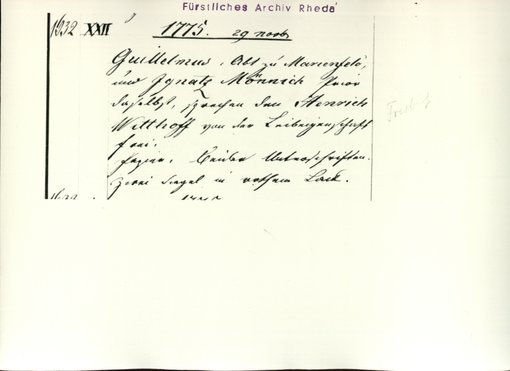 Fürstliches Archiv Rheda
1932 XXII 1775. 29 novb.
Guillelmus, Abt zu Marienfeld,
und Ignatz Mönnich Prior
daselbst, sprechen den Henrich
Witthoff von der Leibeigenschaft
frei.
Papier. Beider Unterschriften.
zwei Siegel in rothem Lack.